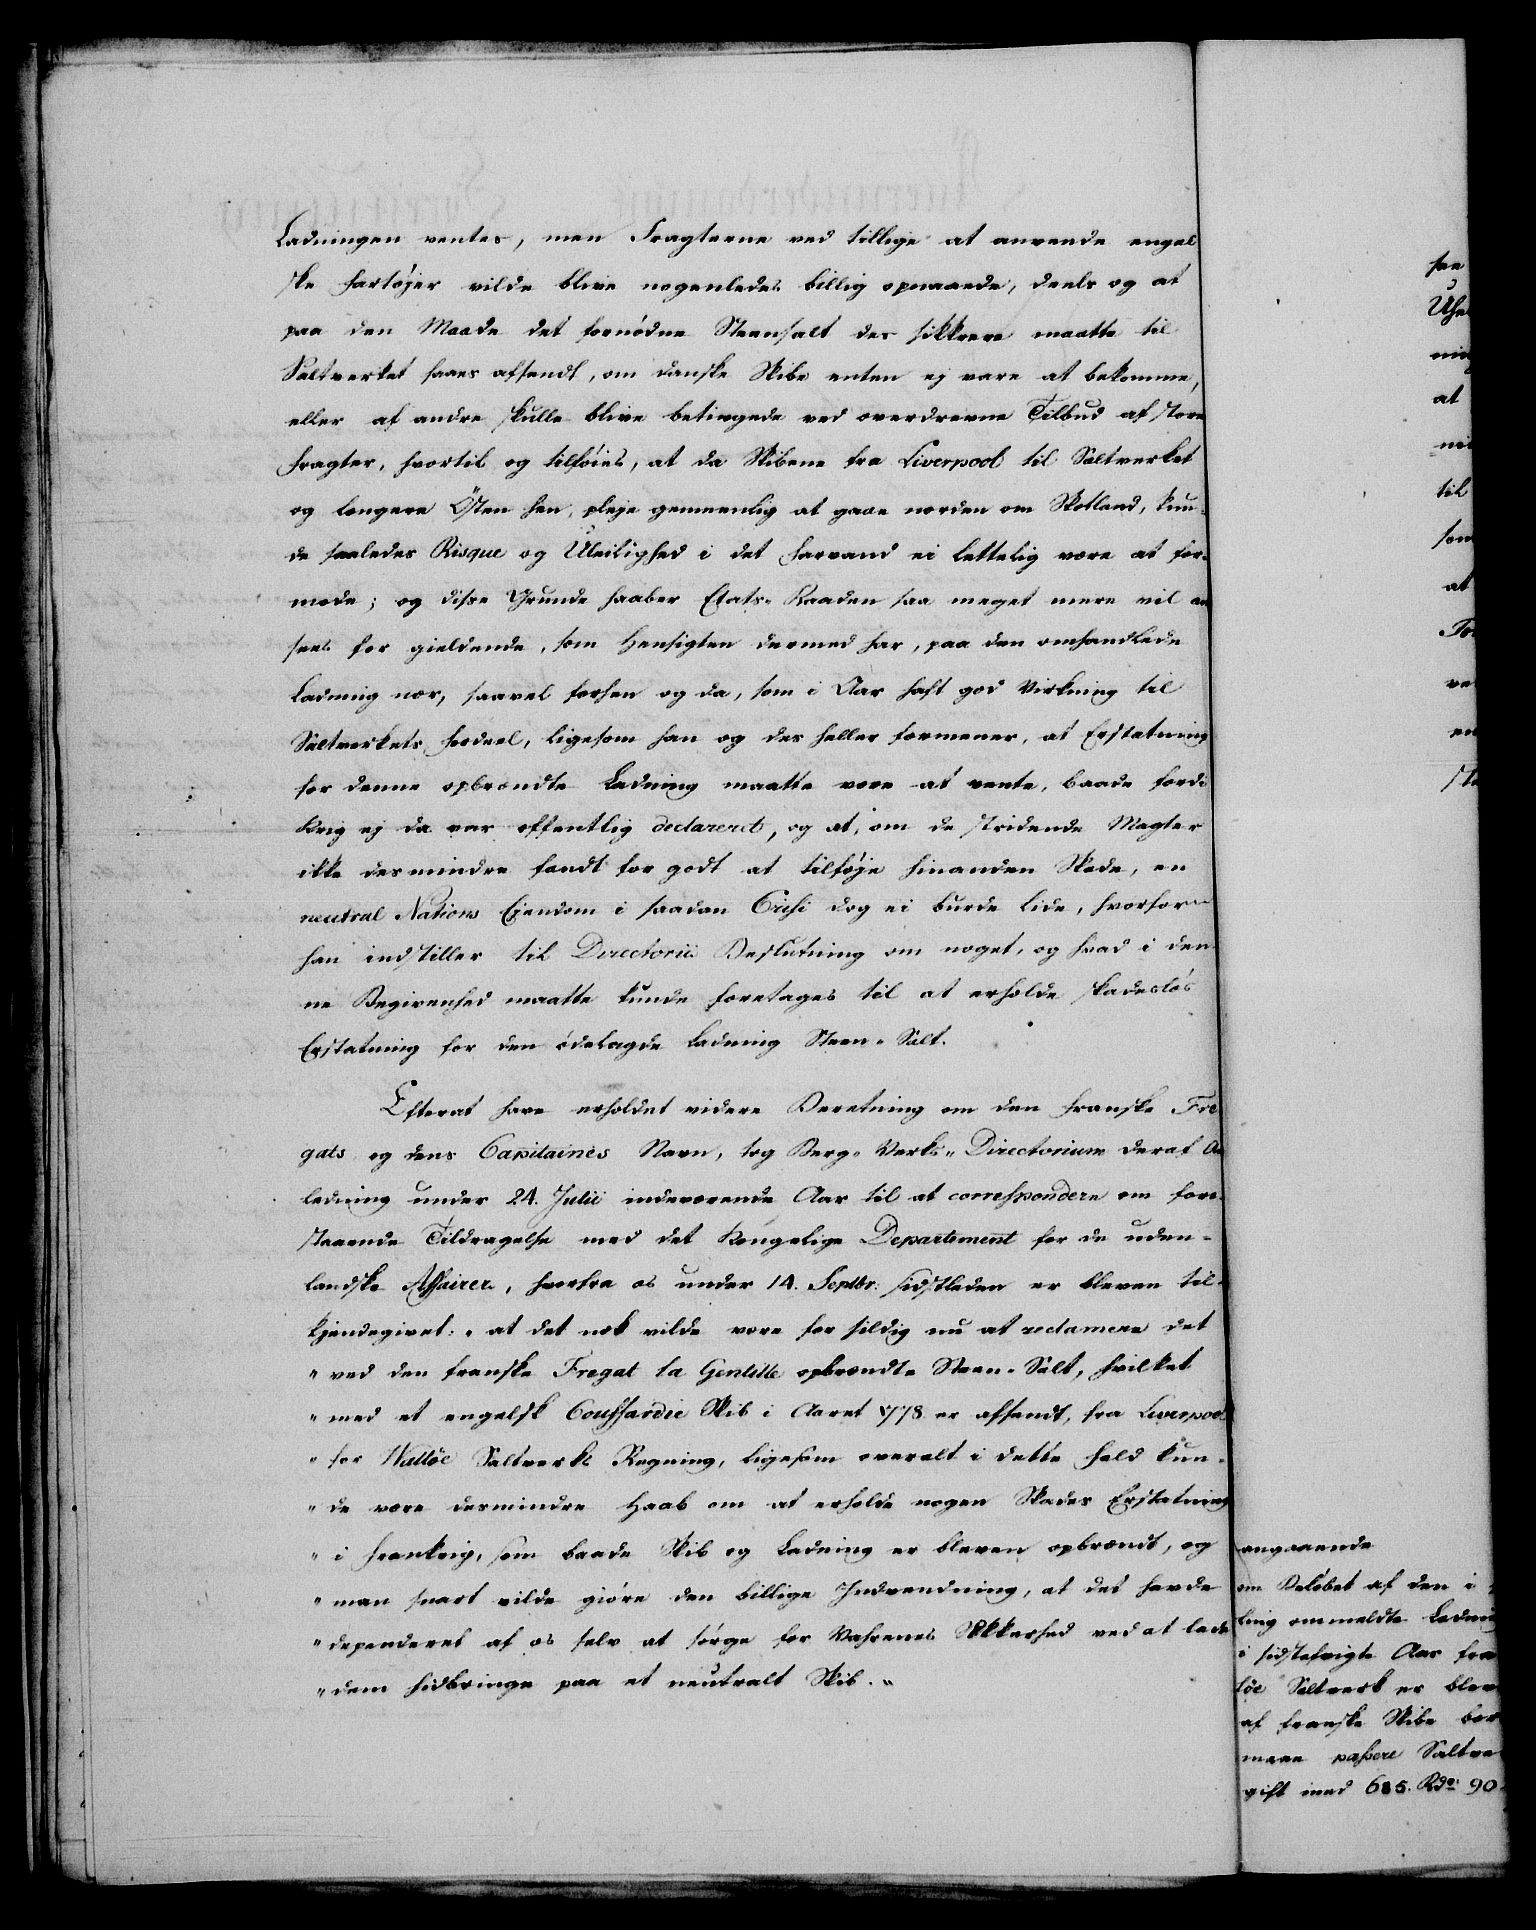 Ladningen ventes, men Fragterne ved tillige at anvende engel
ske Fartøjer vilde blive nogenledes billig opnaaede, deels og at
paa den Maade det fornødne Steensalt des sikkrere maatte til
Saltverket faaes afsendt, om danske Skibe enten ej vare at bekomme,
eller af andre skulle blive betingede ved overdrevne Tilbud af store
Fragter, hvortil og tilføies, at da Skibene fra Liverpool til Saltverket
og længere Østen hen, pleje gemeenlig at gaae norden om Skotland, kun-
de saaledes Risque og Uleilighed i det Farvand ei lettelig være at for-
mode; og disse Grunde haaber Etats-Raaden saa meget mere vil an
sees for gieldende, som Hensigten dermed har, paa den omhandlede
Ladning nær, saavel forhen og da, som i Aar haft god Virkning til
Saltverkets Fordeel, ligesom han og des heller formener, at Erstatning
for denne opbrændte Ladning maatte være at vente, baade fordi
Krig ej da var offentlig declareret, og at, om de stridende Magter
ikke desmindre fandt for godt at tilføje hinanden Skade, en
neutral Nations Ejendom i saadan Crisi dog ei burde lide, hvorfor
han indstiller til Directorii Beslutning om noget, og hvad i den-
ne Begivenhed maatte kunde foretages til at erholde skadesløs
Erstatning for den ødelagde Ladning Steen-Salt.
Efterat have erholdet videre Beretning om den franske Fre
gats og dens Capitaines Navn, tog Berg-Verks-Directorium deraf An
ledning under 24. Julii indeværende Aar til at correspondere om fore-
staaende Tildragelse med det Kongelige Departement for de uden-
landske Affairer, hvorfra os under 14. Septbr. sidstleden er bleven til-
kjendegivet: " at det nok vilde være for sildig nu at reclamere det
" ved den franske Fregat la Gentille opbrændte Steen-Salt, hvilket
" med et engelsk Couffardie Skib i Aaret 1778 er afsendt, fra Liverpool
" for Walløe Saltverks Regning, ligesom overalt i dette Fald kun-
" de være desmindre Haab om at erholde nogen Skades Erstatning
" i Frankrig, som baade Skib og Ladning er bleven opbrændt, og
" man snart vilde giøre den billige Indvendning, at det havde
" dependeret af os selv at sørge for Vahrenes Sikkerhed ved at lade
" dem hidbringe paa et neutralt Skib. "
angaaende
om Beløbet af den i
ling ommeldte Ladning
i sidstafvigte Aar fra
løe Saltverk er blev
af franske Skibe
maae passere Saltve
gift med 685. Rdr 90